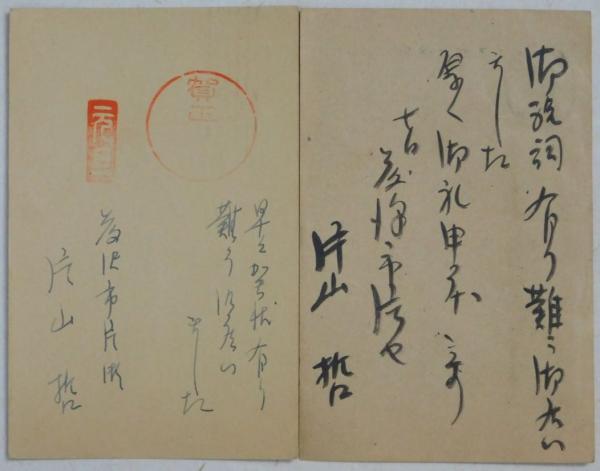 御祝詞有り難う御座い
ました
厚く御礼申
藤沢市片セ
片山 哲
賀正
元旦
早々お賀状有り
難う御座い
ました
藤沢市片瀬
片山 哲